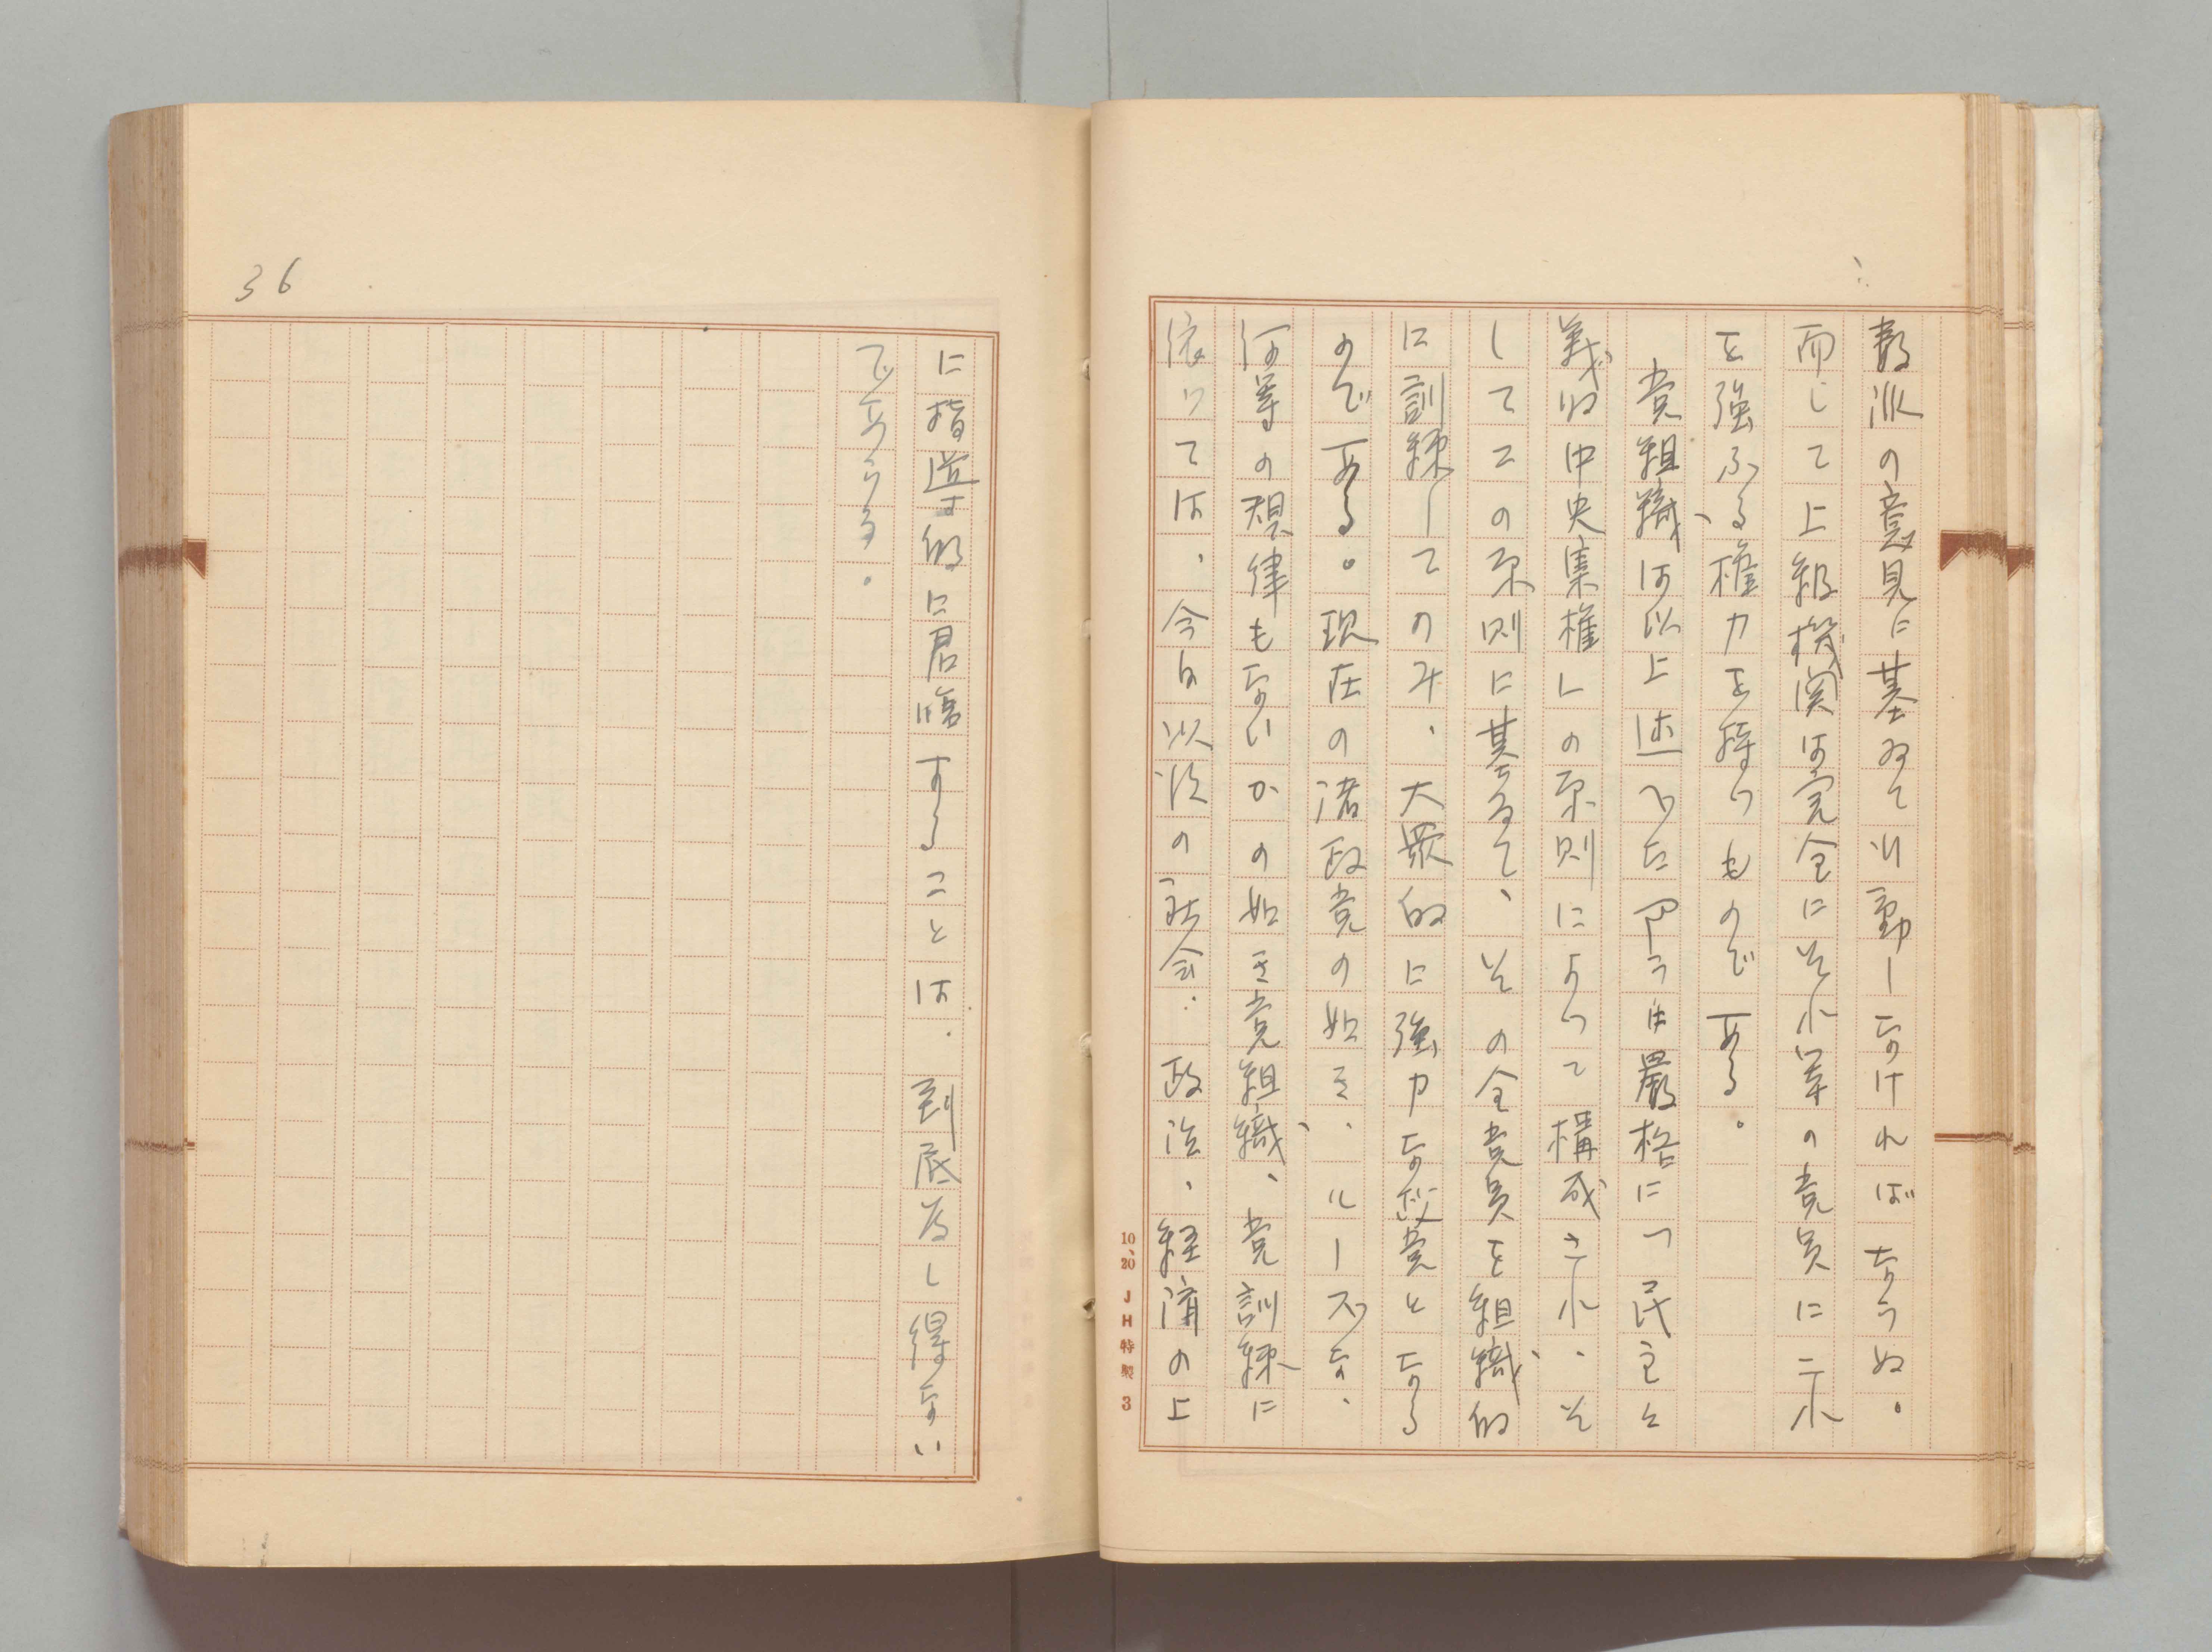 数派の意見に基ゐて行動しなければならぬ。
而して上級機関は完全にそれ等の党員に之れ
を強ふる権力を持つものである。
党組織は以上述べたやうな厳格に「民主々
義的中央集権」の原則によつて構成され、そ
してこの原則に基ゐて、その全党員を組織的
に訓練してのみ、大衆的に強力な政党となる
のである。現在の諸政党の如き、ルーズな、
何等の規律もないかの如き党組織、党訓練に
依つては、今日以後の社会、政治、経済の上
10、20 JH特製 3
36
に指導的に君臨することは、到底為し得ない
であらう。